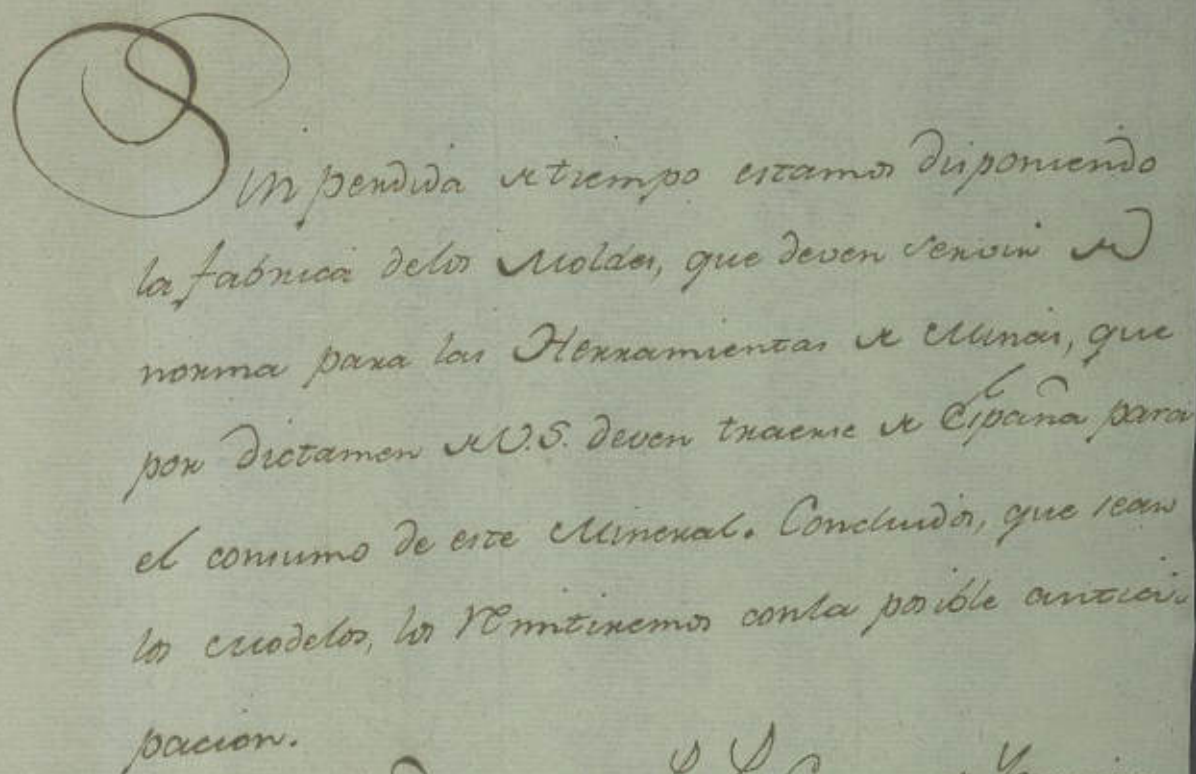 Sin perdida de tiempo estamos disponiendo
la fabrica delos Moldes, que deven servir de
norma para las Herramientas de Minas, que
por dictamen de V.S. deven traerse de España para
el consumo de este Mineral. Concluidos, que sean
los modelos, los Remitiremos conla posible antici-
pacion.